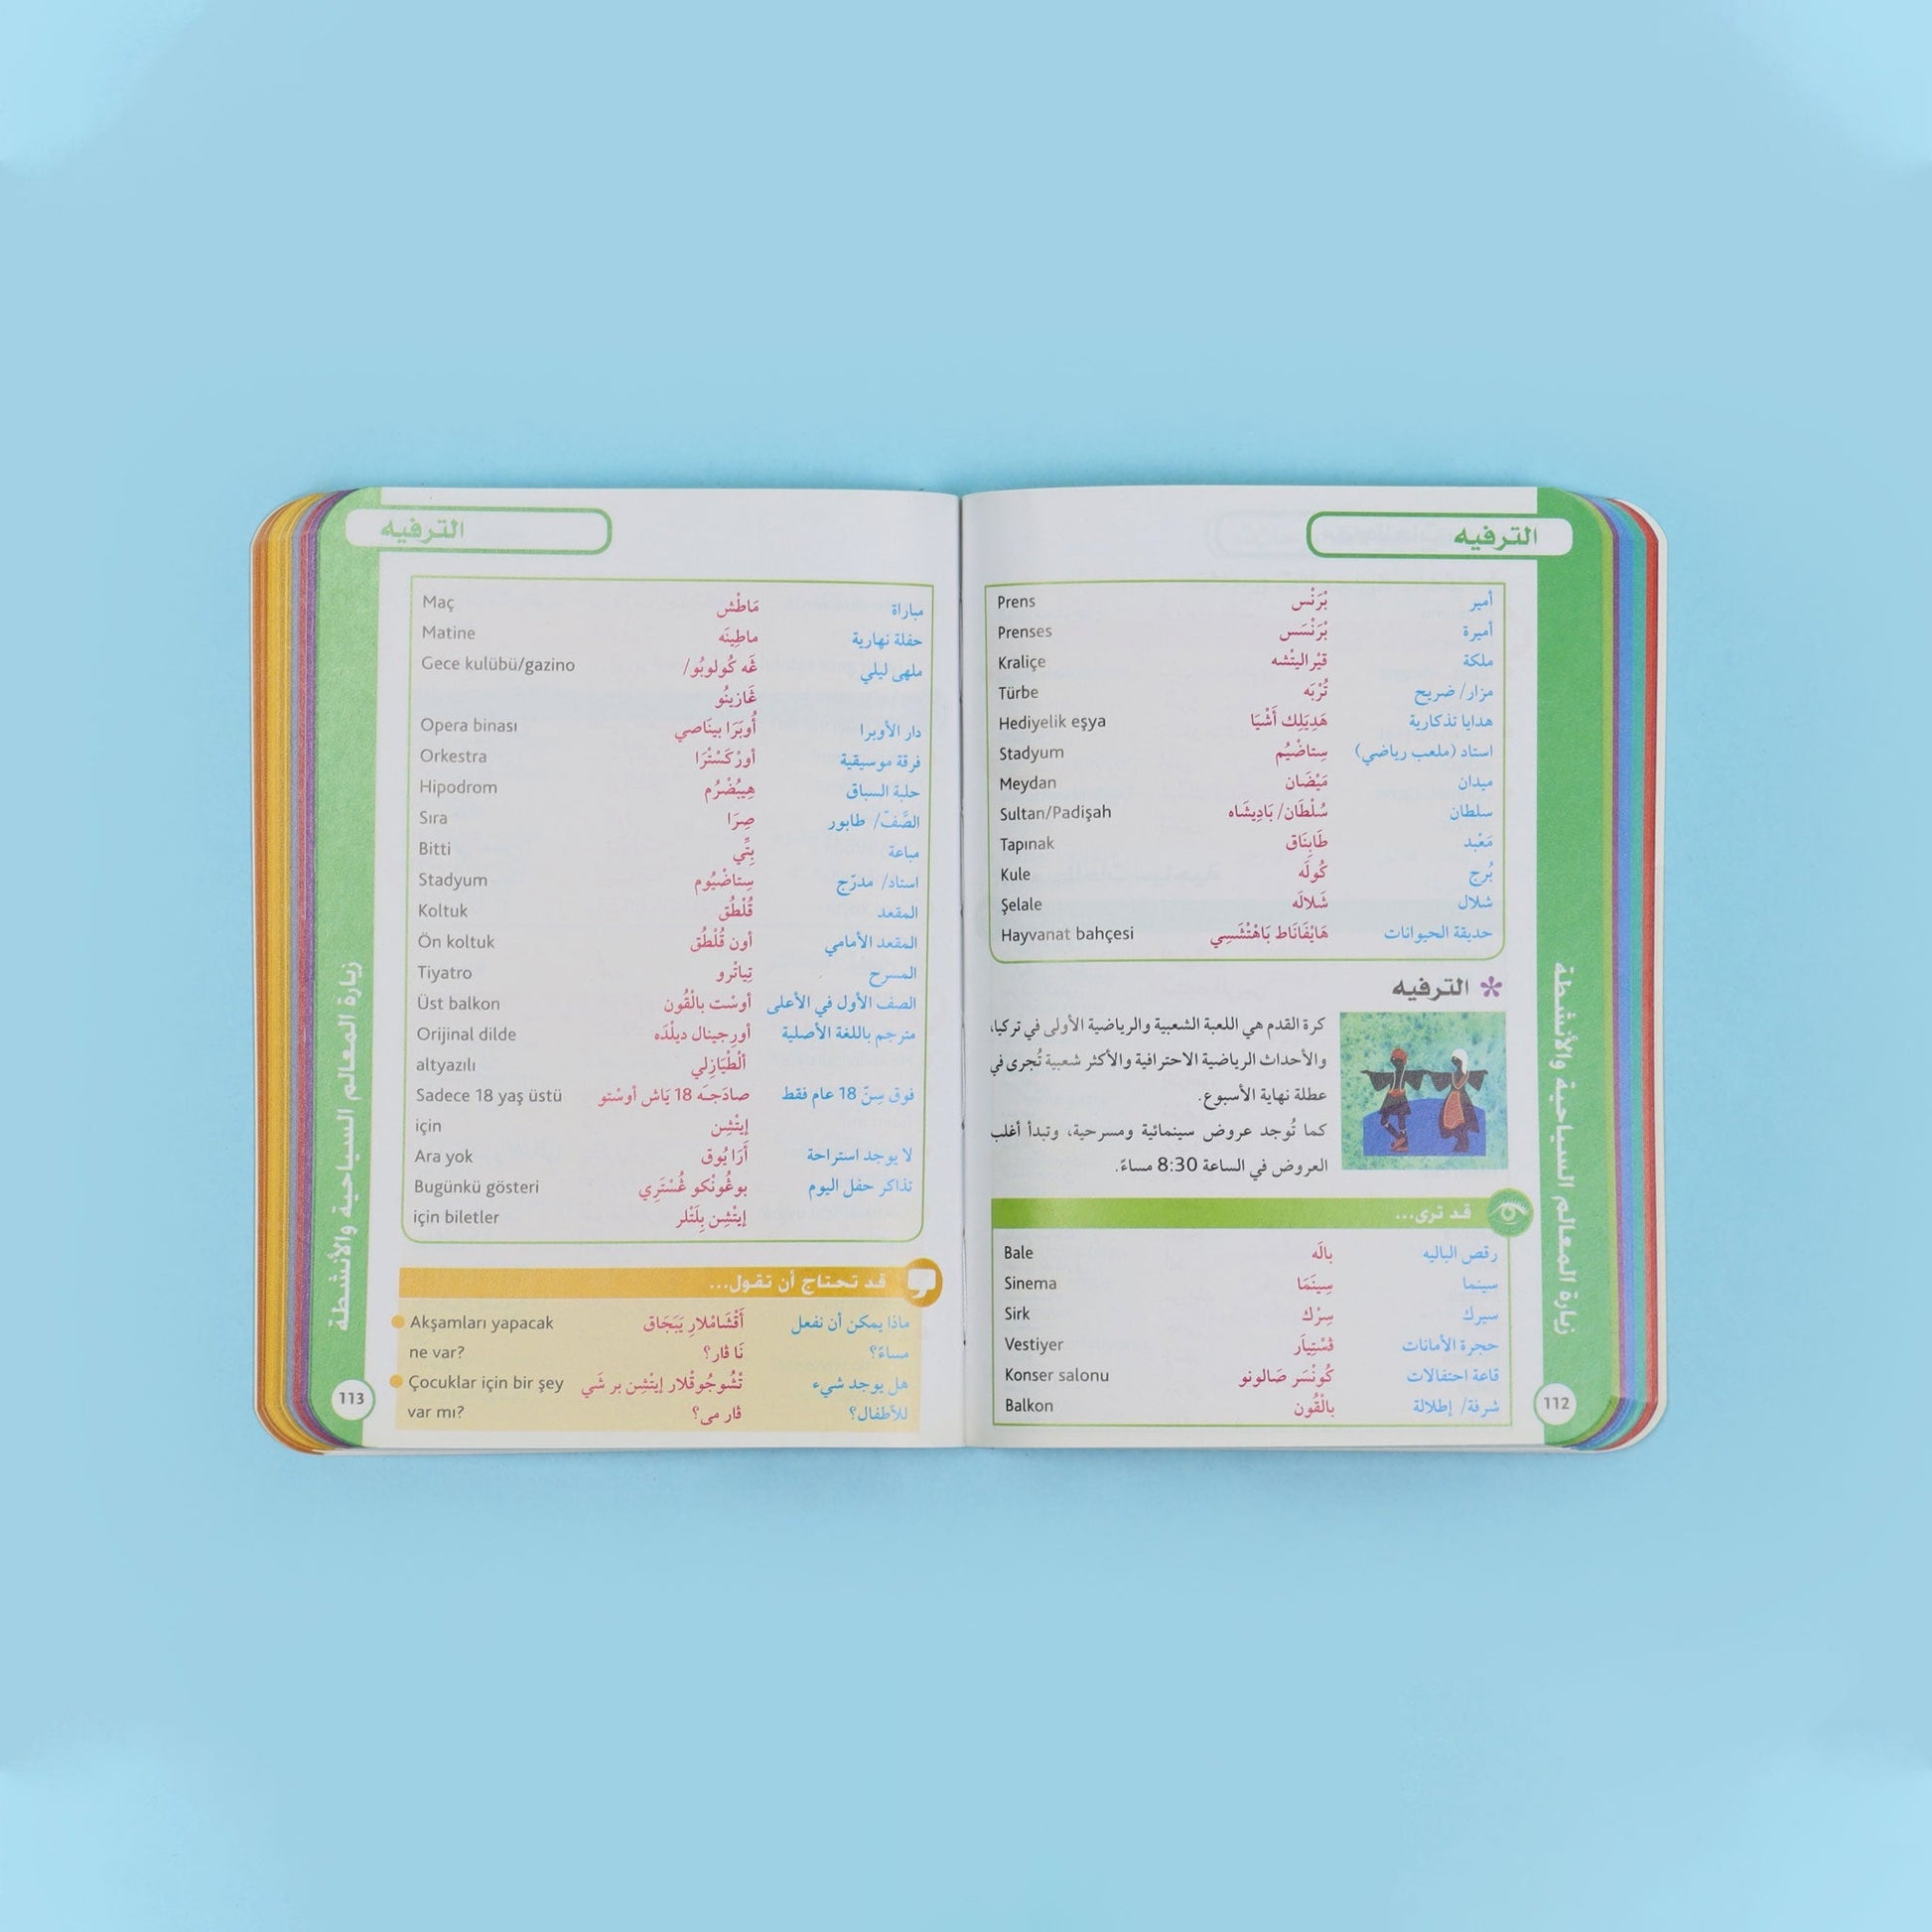 الترفيه
أمير بْرَنْس Prens
أميرة بْرَنْسَس Prenses
ملكة قيْراليتْشه Kraliçe
مزار/ ضريح تُرْبَه Türbe
هدايا تذكارية هَدِيَلِك أَشْيَا Hediyelik eşya
استاد (ملعب رياضي) سِتاضْيُم Stadyum
ميدان مَيْضَان Meydan
سلطان سُلْطَان/ بَادِيشَاه Sultan/Padişah
مَعْبد طَابِنَاق Tapınak
بُرج كُولَه Kule
شلال شَلالَه Şelale
حديقة الحيوانات هَايْفَانَاط بَاهْتْشَسِي Hayvanat bahçesi
* الترفيه
كرة القدم هي اللعبة الشعبية والرياضية الأولى في تركيا،
والأحداث الرياضية الاحترافية والأكثر شعبية تُجرى في
عطلة نهاية الأسبوع.
كما تُوجد عروض سينمائية ومسرحية، وتبدأ أغلب
العروض في الساعة 8:30 مساءً.
قد ترى...
رقص الباليه بالَه Bale
سينما سِينَمَا Sinema
سيرك سِرْك Sirk
حجرة الأمانات ڤسْتِيَار Vestiyer
قاعة احتفالات كُونْسَر صَالونو Konser salonu
شرفة/ إطلالة بالْقُون Balkon
زيارة المعالم السياحية والأنشطة
112
الترفيه
مباراة مَاطْش Maç
حفلة نهارية ماطِينَه Matine
ملهى ليلي غَه كُولوبُو/ Gece kulübü/gazino
غَازينُو
دار الأوبرا أُوبَرَا بينَاصي Opera binası
فرقة موسيقية أورْكَسْتْرَا Orkestra
حلبة السباق هِيبُضْرُم Hipodrom
الصَّفّ/ طابور صِرَا Sıra
مباعة بِتِّي Bitti
استاد/ مدرّج سِتاضْيُوم Stadyum
المقعد قُلْطُق Koltuk
المقعد الأمامي أون قُلْطُق Ön koltuk
المسرح تِياتْرو Tiyatro
الصف الأول في الأعلى أوسْت بالْقُون Üst balkon
مترجم باللغة الأصلية أورِجينال ديلْدَه Orijinal dilde
ألْطْيَازِلي altyazılı
فوق سِنّ 18 عام فقط صادَجـَه 18 يَاش أوسْتو Sadece 18 yaş üstü
إيتْشِن için
لا يوجد استراحة أَرَا يُوق Ara yok
تذاكر حفل اليوم بوغُونْكو غُسْتَرِي Bugünkü gösteri
إيتْشِن بِلَتْلَر için biletler
قد تحتاج أن تقول...
ماذا يمكن أن نفعل أَقْشَامْلارِ يَبَجَاق Akşamları yapacak
مساءً؟ نَا ڤار؟ ne var?
هل يوجد شيء تْشُوجُوقْلار إيتْشِن بر شَي Çocuklar için bir şey
للأطفال؟ ڤار مى؟ var mı?
زيارة المعالم السياحية والأنشطة
113